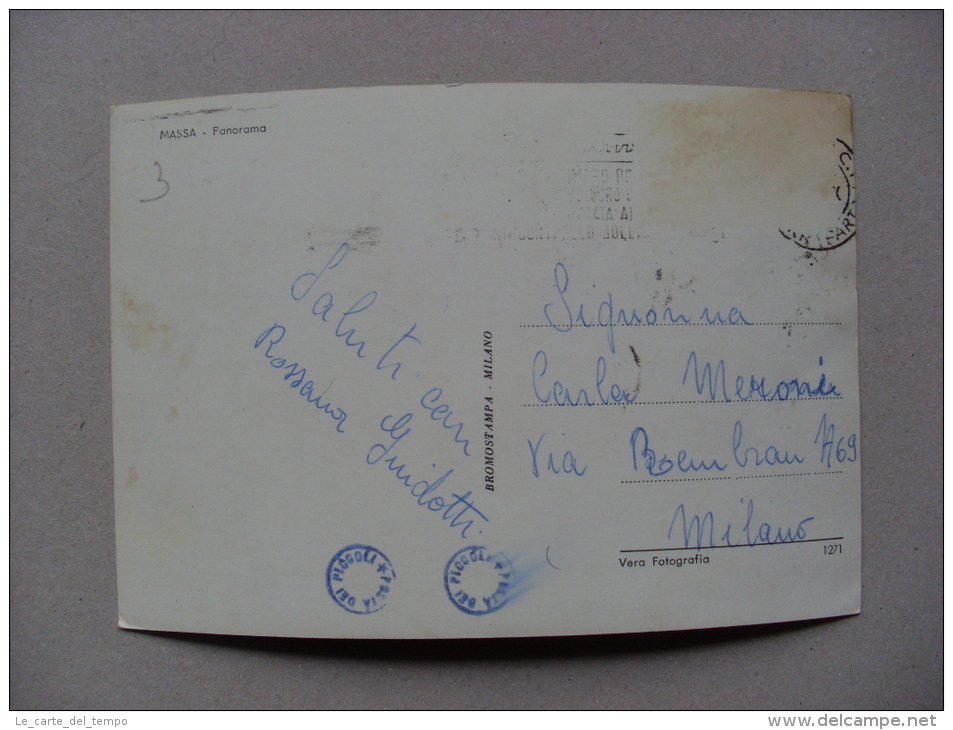 MASSA - Panorama
3
Saluti cari
Rossana Guidotti
BROMOSTAMPA - MILANO
Signorina
Carla Meroni
Via Rembran 69
Milano
1271
Vera Fotografia
POSTA DEI PICCOLI
POSTA DEI PICCOLI
Le_carte_del_tempo
www.delcampe.net